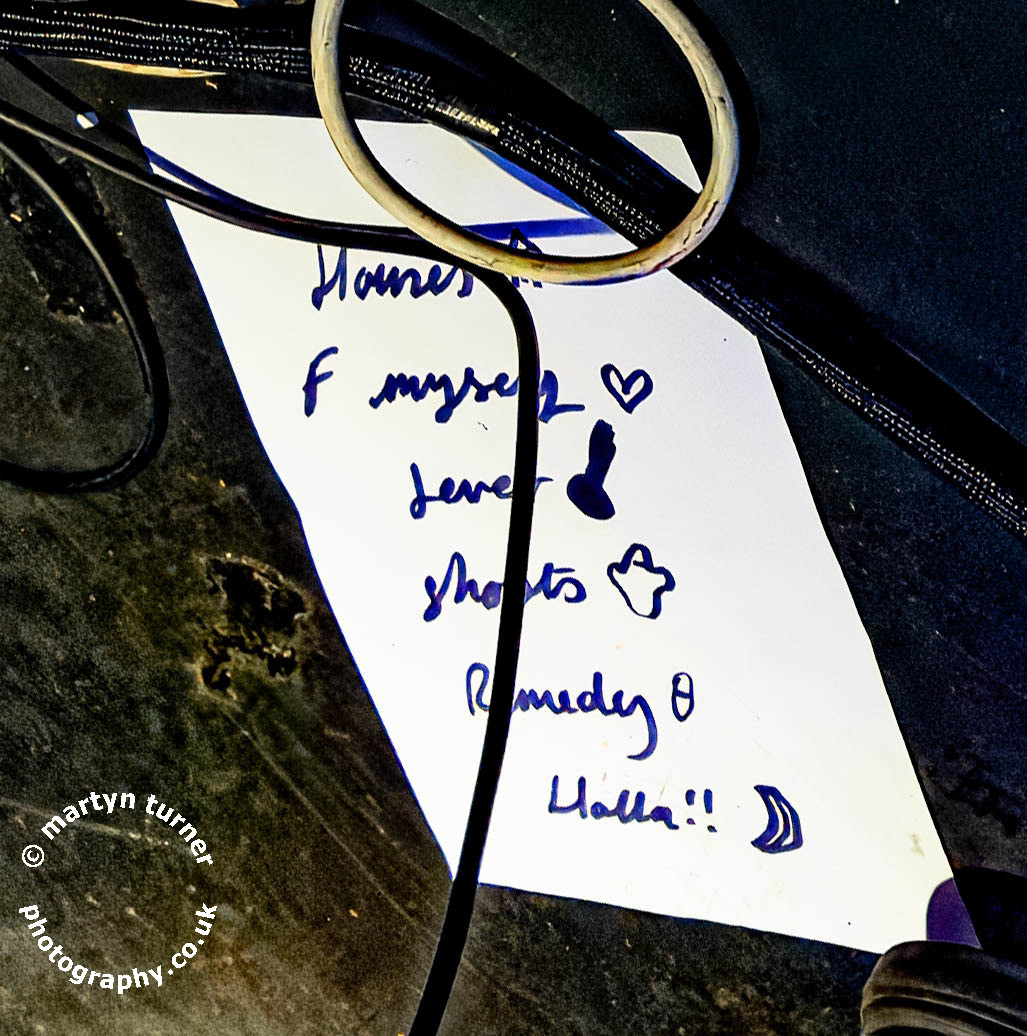 Houses
F myself
Fever
ghosts
Remedy
Holla!!
© martyn turner
photography.co.uk